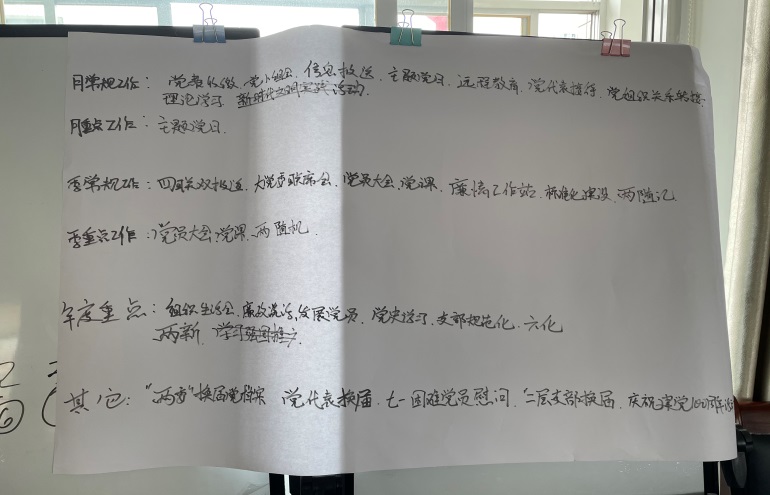 月常规工作：党费收缴、党小组会、信息报送、主题党日、远程教育、党代表接待、党组织关系转接、
理论学习、新时代文明实践活动.
月重点工作：主题党日.
季常规工作：四联双报送、大党委联席会、党员大会、党课、廉情工作站、标准化建设、两随记
季重点工作：党员大会、党课、两随机.
年度重点：组织生活会、廉政 发展党员、党史学习、支部规范化、六化
两新、学习强国
其它：“两委”换届 党代表换届、七一困难党员慰问、二层支部换届、庆祝建党100周年